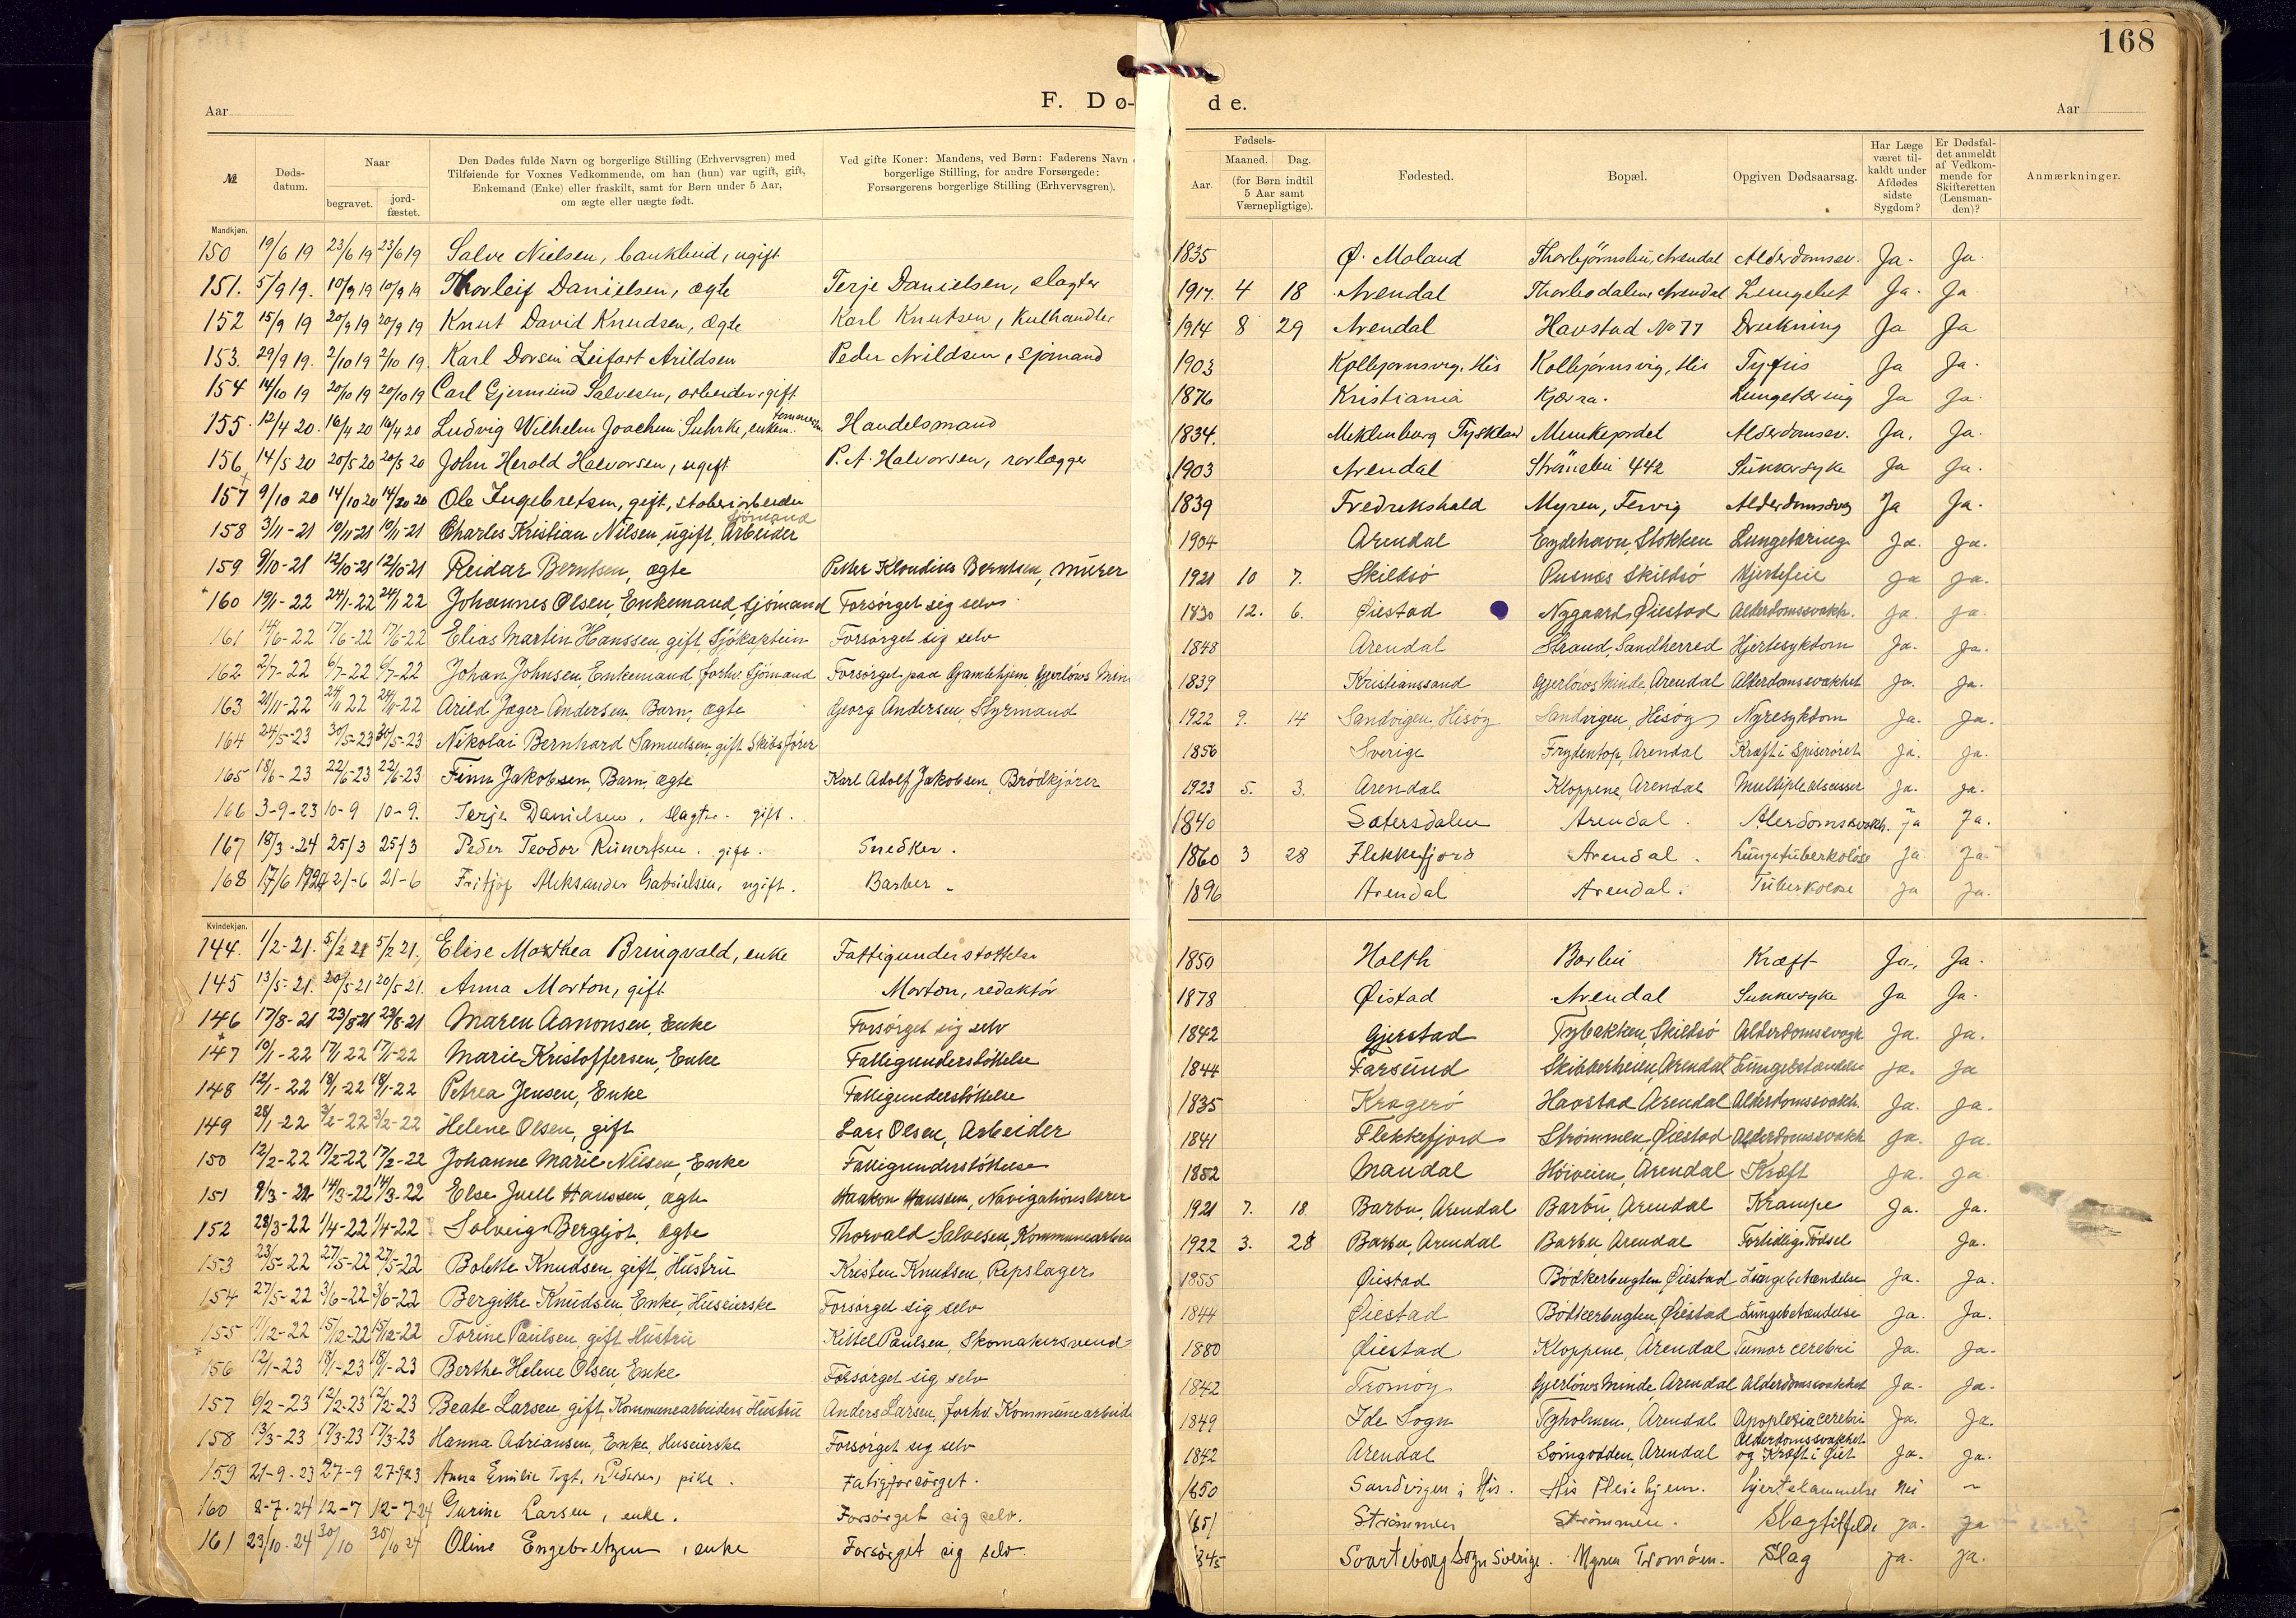 168
Aar F. Dø- de. Aar
№ Døds-datum. Naar begravet. jord-fæstet. Den Dødes fulde Navn og borgerlige Stilling (Erhvervsgren) med Tilføiende for Voxnes Vedkommende, om han (hun) var ugift, gift, Enkemand (Enke) eller fraskilt, samt for Børn under 5 Aar, om ægte eller uægte født. Ved gifte Koner: Mandens, ved Børn: Faderens Navn borgerlige Stilling, for andre Forsørgede: Forsørgerens borgerlige Stilling (Erhvervsgren). Aar. Fødsels- Maaned. Dag. (for Børn indtil 5 Aar samt Værnepligtige). Fødested. Bopæl. Opgiven Dødsaarsag. Har Læge været til-kaldt under Afdødes sidste Sygdom? Er Dødsfal-det anmeldt af Vedkom-mende for Skifteretten (Lensman-den)? Anmærkninger.
Mandkjøn.
150 19/6 19 23/6 19 23/6 19 Salve Nielsen, bankbud, ugift 1835 Ø. Moland Thorbjörnsbu, Arendal Ja. Ja.
151. 5/9 19. 10/9 19 10/9 19 Thorleif Danielsen, ægte Terje Danielsen, slagter 1917. 4 18 Arendal Ja. Ja
152 15/9 19 20/9 19 20/9 19 Knut David Knudsen, ægte Karl Knutsen, Kulhandler 1914 8 29 Arendal Havstad No 77 Drukning Ja Ja
153. 29/9 19. 2/10 19 2/10 19. Karl Leifart Arildsen Peder Arildsen, sjømand 1903 Kolbjornsvig, His Kolbjørnsvig, His Tyfus Ja Ja.
154 14/10 19 20/10 19 20/10 19 Carl Gjermund Salvesen, arbeider, gift 1876 Kristiania Kjærra. Lungetæring Ja Ja.
155. 12/4 20. 16/4 20 16/4 20 Ludvig Wilhelm Joachim Suhrke, enkem. Handelsmand 1834. Meklenburg Tyskland Munkejordet Alderdomsv. Ja. Ja.
156 14/5 20 20/5 20 20/5 20 John Herold Halvorsen, ugift P. A. Halvorsen, rørlægger 1903 Arendal Strømsbu 442 Sukkersyke Ja Ja.
157 9/10 20 14/10 20 14/10 20 Ole Ingebretsen, gift, støberiarbeider 1839 Fredrikshald Myren, Fervig Alderdomssvag Ja Ja.
158 3/11-21 10/11-21 10/11-21 Charles Kristian Nilsen, ugift, Arbeider Sjømand 1904 Arendal Eydehavn, Stokken Lungetæring Ja. Ja.
159 9/10-21 12/10-21 12/10-21 Reidar Berntsen, ægte Petter Klaudius Berntsen, murer 1921 10 7. Skilsö Pusnes Skilsö Hjertefeil Ja Ja.
160 19/1-22 24/1-22 24/1 22 Johannes Olsen, Enkemand, Sjömand Forsörget sig selv. 1830 12. 6. Øiestad Nygaard, Øiestad Alderdomssvakh. Ja. Ja.
161 14/6-22 17/6-22 17/6-22 Elias Martin Hanssen, gift, Sjökaptein Forsörget sig selv 1848 Arendal Strand, Sandherred Hjertesykdom Ja. Ja.
162 2/7-22 6/7-22 6/7-22 Johan Johnsen, Enkemand, forhv. Sjömand Forsörget paa Gamlehjem, Gjerlöws Min 1839 Kristianssand Gjerlöws Minde, Arendal Alderdomssvakhet Ja. Ja.
163 21/11-22 24/11 22 24/11-22 Arild Jæger Andersen, Barn, ægte Georg Andersen, Styrmand 1922 9. 14 Sandvigen, Hisöy Sandvigen, Hisöy Nyresykdom Ja. Ja.
164 24/5-23 30/5-23 30/5-23 Nikolai Bernhard Samuelsen, gift, Skibsförer 1856 Sverige Frydentop, Arendal Kræft i Spiserøret Ja. Ja.
165 18/6-23 22/6-23 22/6-23 Finn Jakobsen, Barn, ægte Karl Adolf Jakobsen, Brödkjörer 1923 5. 3. Arendal Kloppene, Arendal Ja. Ja.
166 3-9-23 10-9 10-9. Terje Danielsen, slagter. gift. 1840 Sætersdalen Arendal. Alerdomssvakh. Ja Ja.
167 18/3-24 25/3 25/3 Peder Teodor Runertsen. gift. Snedker. 1860 3 28 Flekkefjord Arendal. Lungetuberkoløse Ja Ja
168 17/6 1924 21-6 21-6 Fritjof Aleksander Gabrielsen, ugift. Barber. 1896 Arendal Arendal. Tuberkolose Ja Ja.
Kvindekjøn.
144. 1/2-21. 5/2 21 5/2 21. Elise Marthea Bringvald, enke Fattigunderstøttelse 1850 Holth Barbu Kræft Ja. Ja.
145 13/5-21. 20/5-21 20/5-21. Anna Morton, gift Morton, redaktör 1878 Øistad Arendal Sukkersyke Ja Ja.
146 17/8-21 23/8-21 23/8-21 Maren Aanonsen, Enke Forsörget sig selv 1842 Gjerstad Tybakken, Skilsö Alderdomssvagh Ja. Ja.
147 10/1-22 17/1 22 17/1-22 Marie Kristoffersen, Enke Fattigunderstöttelse 1844 Farsund Skibberheien, Arendal Lungebetændelse Ja. Ja
148 12/1-22 18/1-22 18/1-22 Petrea Jensen, Enke Fattigunderstöttelse 1835 Kragerö Havstad Arendal Alderdomssvakh. Ja. Ja.
149 28/1-22 3/2-22 3/2-22 Helene Olsen, gift Lars Olsen, Arbeider 1841 Flekkefjord Strömmen, Øiestad Alderdomssvakh Ja. Ja.
150 12/2-22 17/2-22 17/2-22 Johanne Marie Nilsen, Enke Fattigunderstöttelse 1852 Mandal Höiveien, Arendal Kræft Ja. Ja
151 9/3-22 14/3-22 14/3-22 Else Juell Hanssen, ægte Haakon Hanssen, Navigationslærer 1921 7. 18 Barbu, Arendal Barbu, Arendal Krampe Ja. Ja.
152 28/3-22 1/4-22 1/4-22 Solveig Bergljot, ægte Thorvald Salvesen, Kommunearbei 1922 3. 28 Barbu, Arendal Barbu, Arendal Fortidlig Födsel Ja.
153 23/5-22 27/5-22 27/5-22 Bolette Knudsen, gift, Hustru Kristen Knutsen, Repslager 1855 Øiestad Bödkerbugten, Øiestad Lungebetændelse Ja. Ja.
154 27/5-22 3/6-22 3/6-22 Bergithe Knudsen, Enke, Huseierske Forsörget sig selv 1844 Øiestad Bödkerbugten, Øiestad Lungebetændelse Ja. Ja.
155 11/12-22 15/12-22 15/12-22 Torine Paulsen, gift Hustru Kittel Paulsen, Skomakersvend 1880 Øiestad Kloppene, Arendal Tumor cerebri Ja. Ja.
156 12/1-23 18/1-23 18/1-23 Berthe Helene Olsen, Enke Forsörget sig selv 1842 Tromöy Gjerlöws Minde, Arendal Alderdomssvakhet Ja. Ja.
157 6/2-23 12/2-23 12/2-23 Beate Larsen, gift, Kommunearbeiders Hustru Anders Larsen, forhv. Kommunearbeid 1849 Ide Sogn Tyholmen, Arendal Apoplexia cerebri Ja. Ja.
158 13/3-23 17/3-23 17/3-23 Hanna Adriansen, Enke, Huseierske Forsörget sig selv 1842 Arendal Arendal Alderdomssvakhet og Kræft i Ja. Ja.
159 21-9-23 27-9 27-9 23 Anna Emilie Pedersen, pike. Fatigforsörget. 1850 Sandvigen i His. His Pleiehjem. hjertelammelse Nei
160 8-7-24 12-7 12-7-24 Gurine Larsen, enke. Forsörget sig selv. Strömmen Strömmen. Slagtilfelde Ja. Ja
161 23/10-24 30/10 30/10 24 Oline Engebretzen, enke Forsörget sig selv. 1845 Svarteborg Sogn Sverige. Myren Tromöen. Slag Ja. Ja.